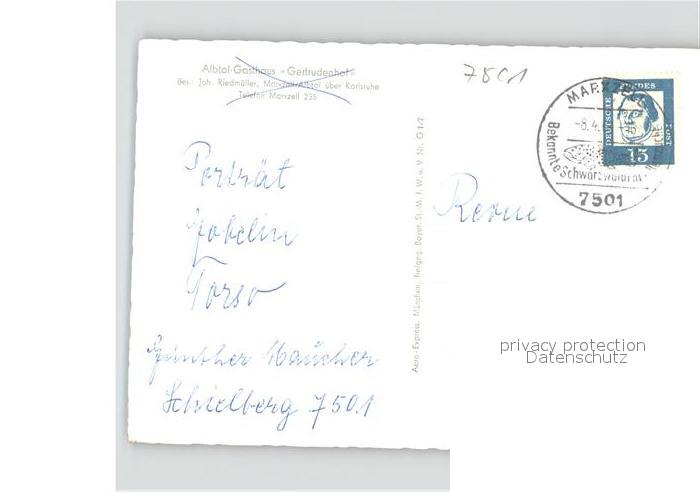 Albtal-Gasthaus »Gertrudenhof«
Bes.: Joh. Riedmüller, Marxzell/Albtal über Karlsruhe
Telefon Marxzell 235
7501
MARXZELL
-8.4.
Bekannte Schwarzwald
7501
DEUTSCHE
BUNDESPOST
15
Porträt
Gobelin
Torso
Revue
Günther Maucher
Schielberg 7501
Aero-Express, München, Freigeg. Bayer. St. M. f. W. u. V. Nr. G 1/2
privacy protection
Datenschutz